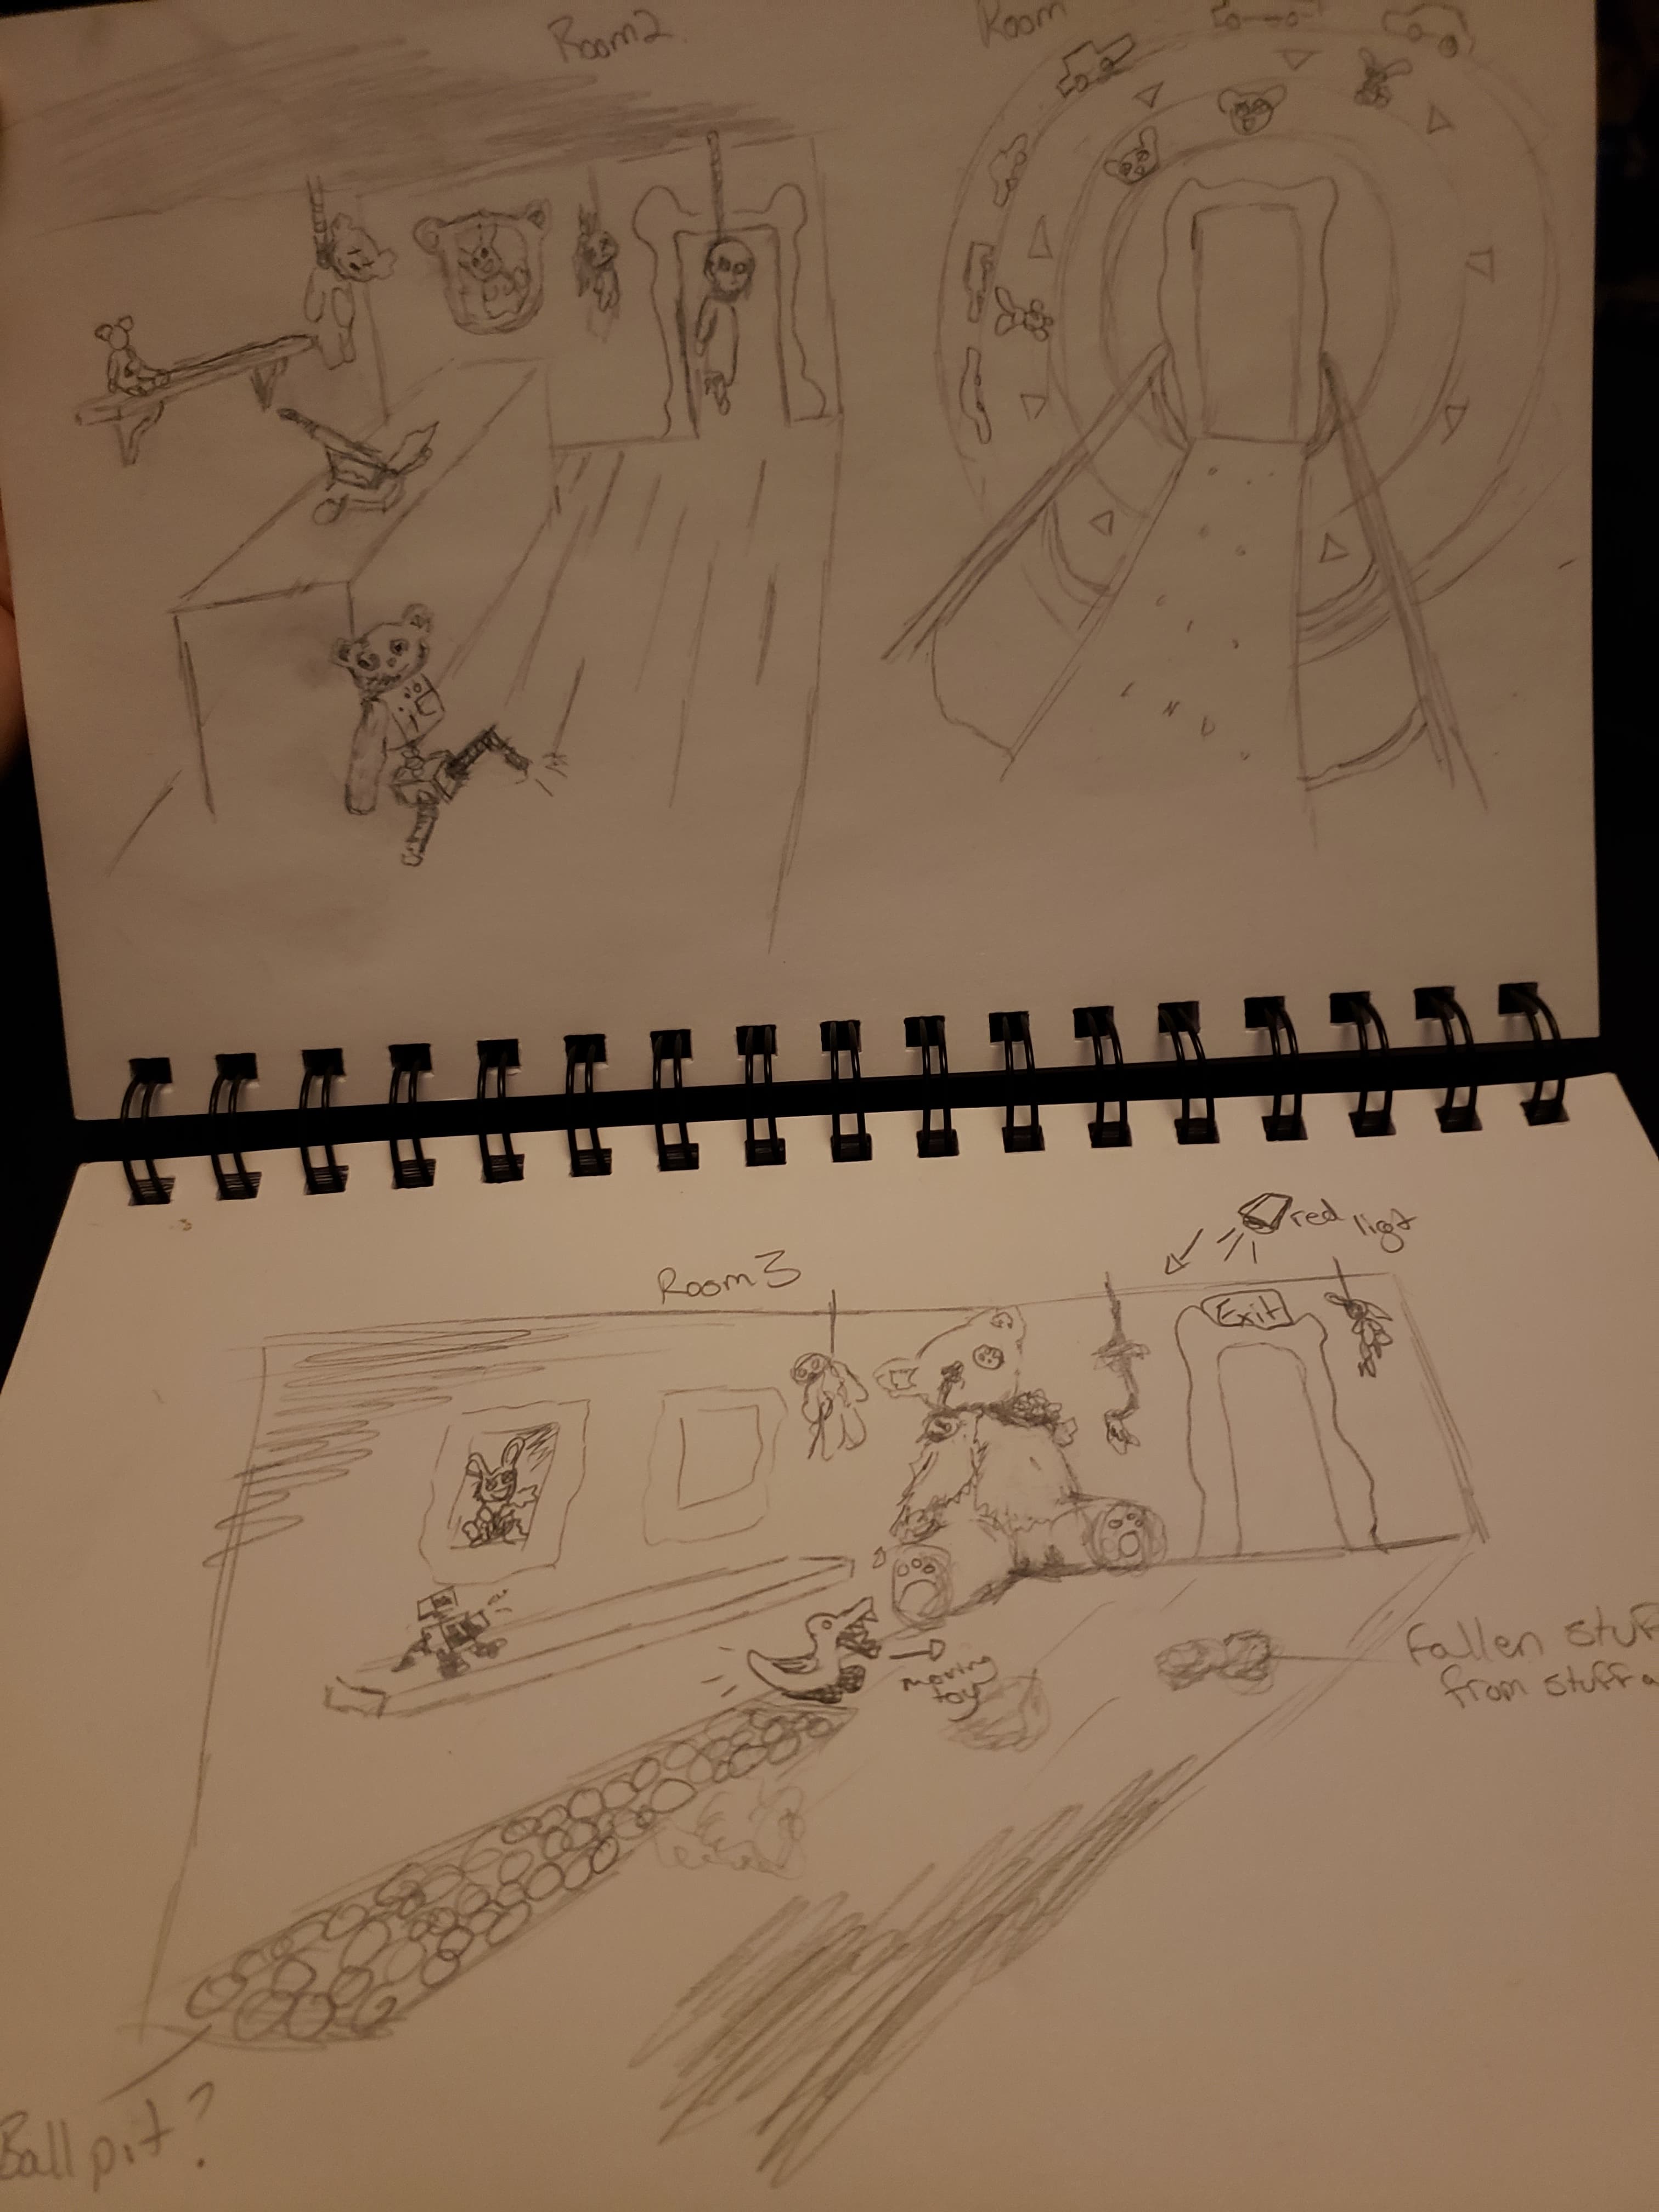 Room2
Room
Room3
red ligt
Exit
moving
toy
Fallen stuf
from stuff a
Ball pit?